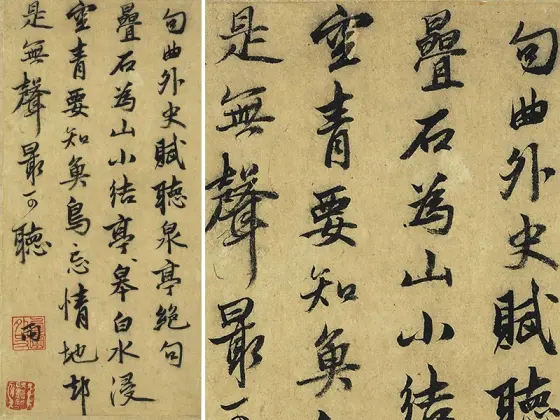 句曲外史賦聽泉亭絕句
疊石為山小結亭、皋白水浸
空青要知魚鳥忘情地却
是無聲最可聽
雨
句曲外史賦聽
疊石為山小結
空青要知魚
是無聲最可